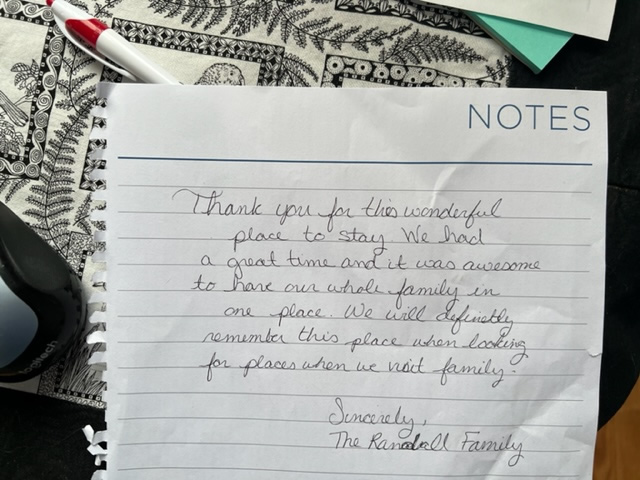 NOTES
Thank you for this wonderful
place to stay. We had
a great time and it was awesome
to have our whole family in
one place. We will definetly
remember this place when looking
for places when we visit family.
Sincerely,
The Randall Family
logitech